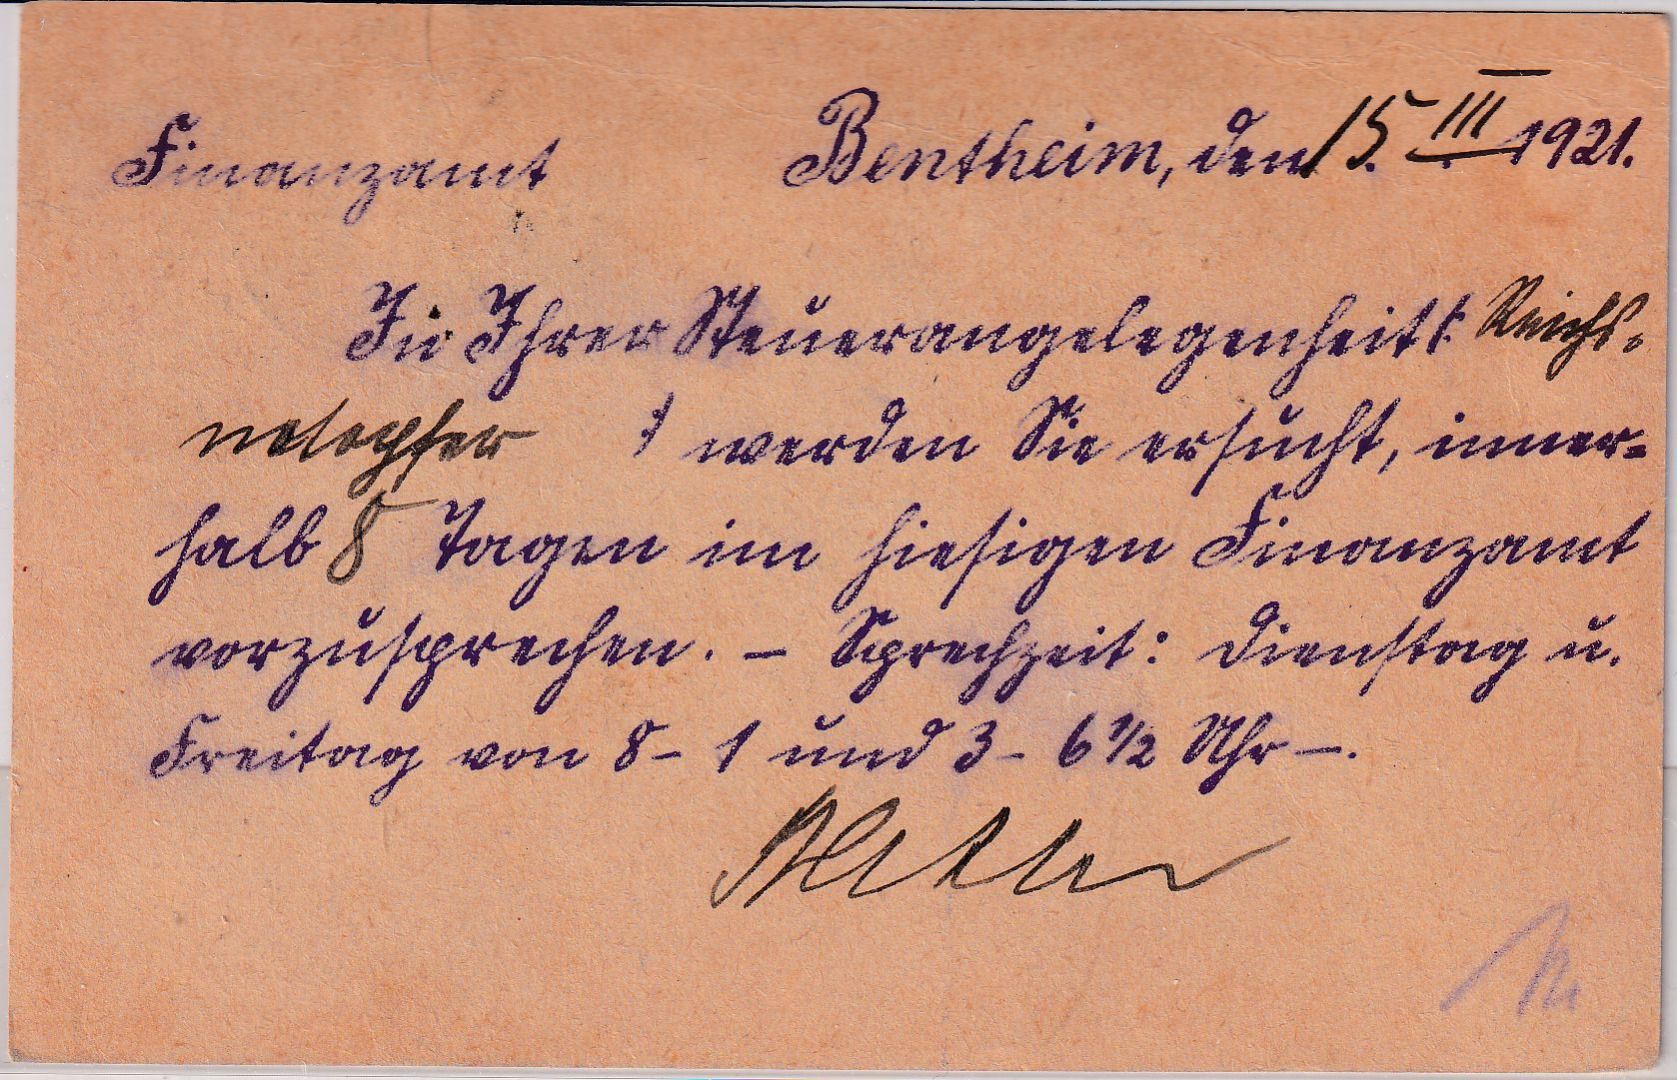 Finanzamt
Bentheim, den 15. III. 1921.
In Ihrer Steuerangelegenheit (: Reichs-
notopfer :) werden Sie ersucht, inner-
halb 8 Tagen im hiesigen Finanzamt
vorzusprechen. – Sprechzeit: Dienstag u.
Freitag von 8 – 1 und 3 – 6 1/2 Uhr –.